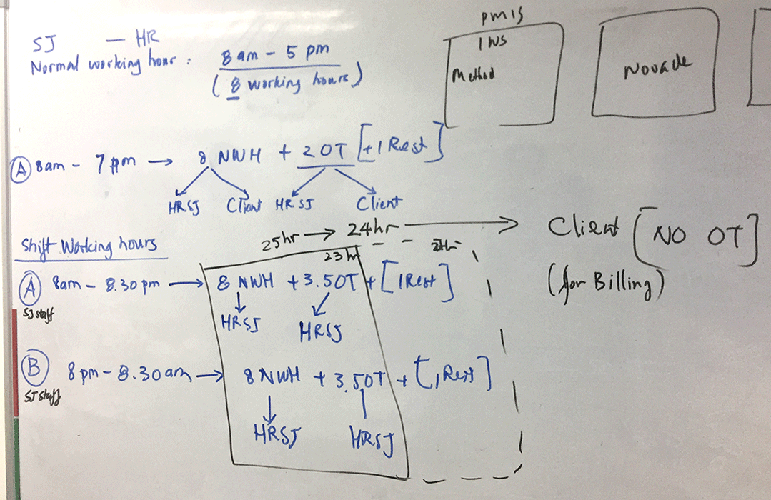 SJ — HR
Normal working hour : 8am - 5 pm
(8 working hours)
PMIS
INS
Method
Novade
(A) 8am - 7pm → 8 NWH + 2 OT [+1 Rest]
HRSJ Client HRSJ Client
Shift Working hours
25hr → 24hr → Client [NO OT]
(for Billing)
23 hr
(A) 8am - 8.30pm → 8 NWH + 3.5OT + [1Rest]
SJ staff
HRSJ HRSJ
(B) 8pm - 8.30am → 8 NWH + 3.5OT + [1Rest]
SJ staff
HRSJ HRSJ